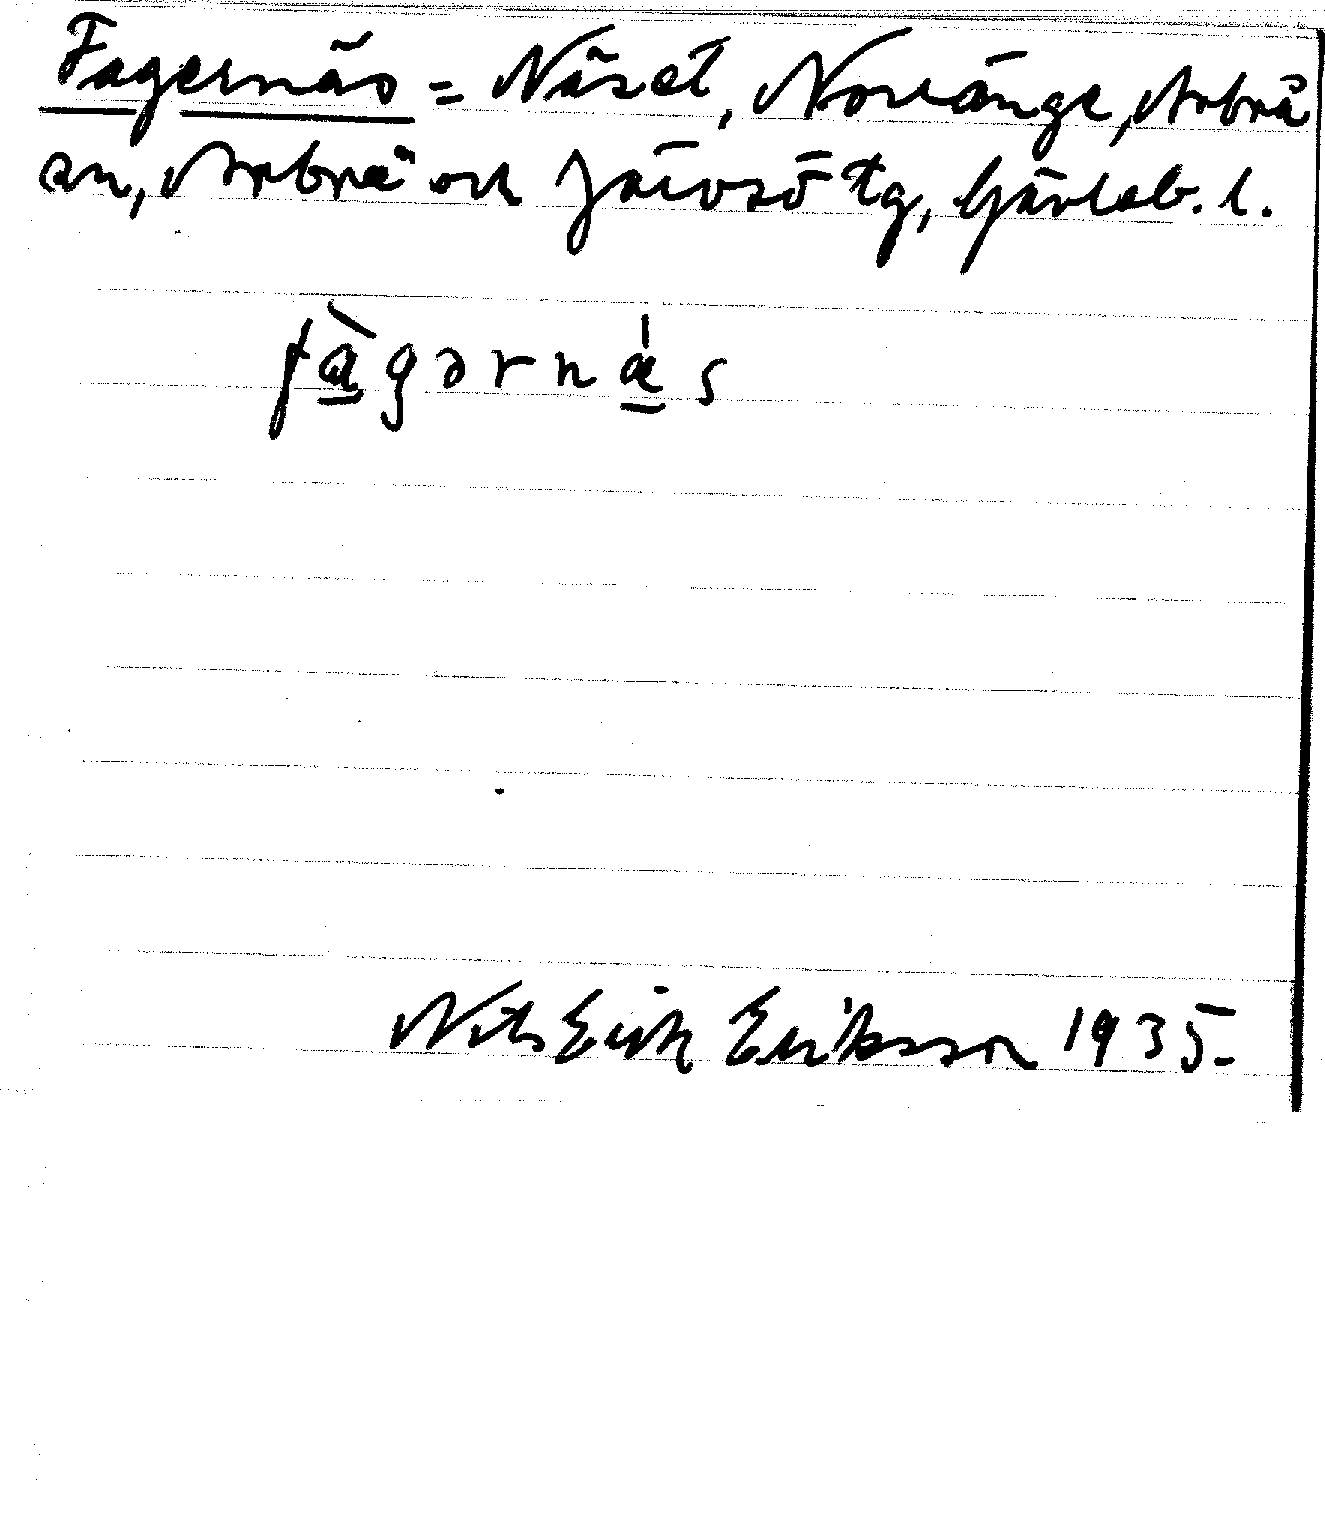 Fagernäs = Näset, Norränge, Arbrå
sn, Arbrå och Järvsö tg, Gävleb. l.
fàgərnǽs
Nils Erik Eriksson 1935.